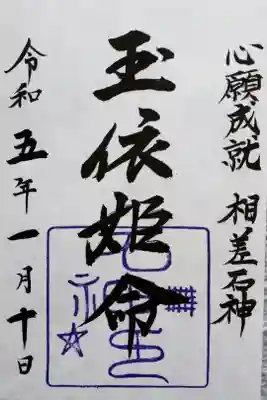 心願成就 相差石神
玉依姫命
令和五年一月十日